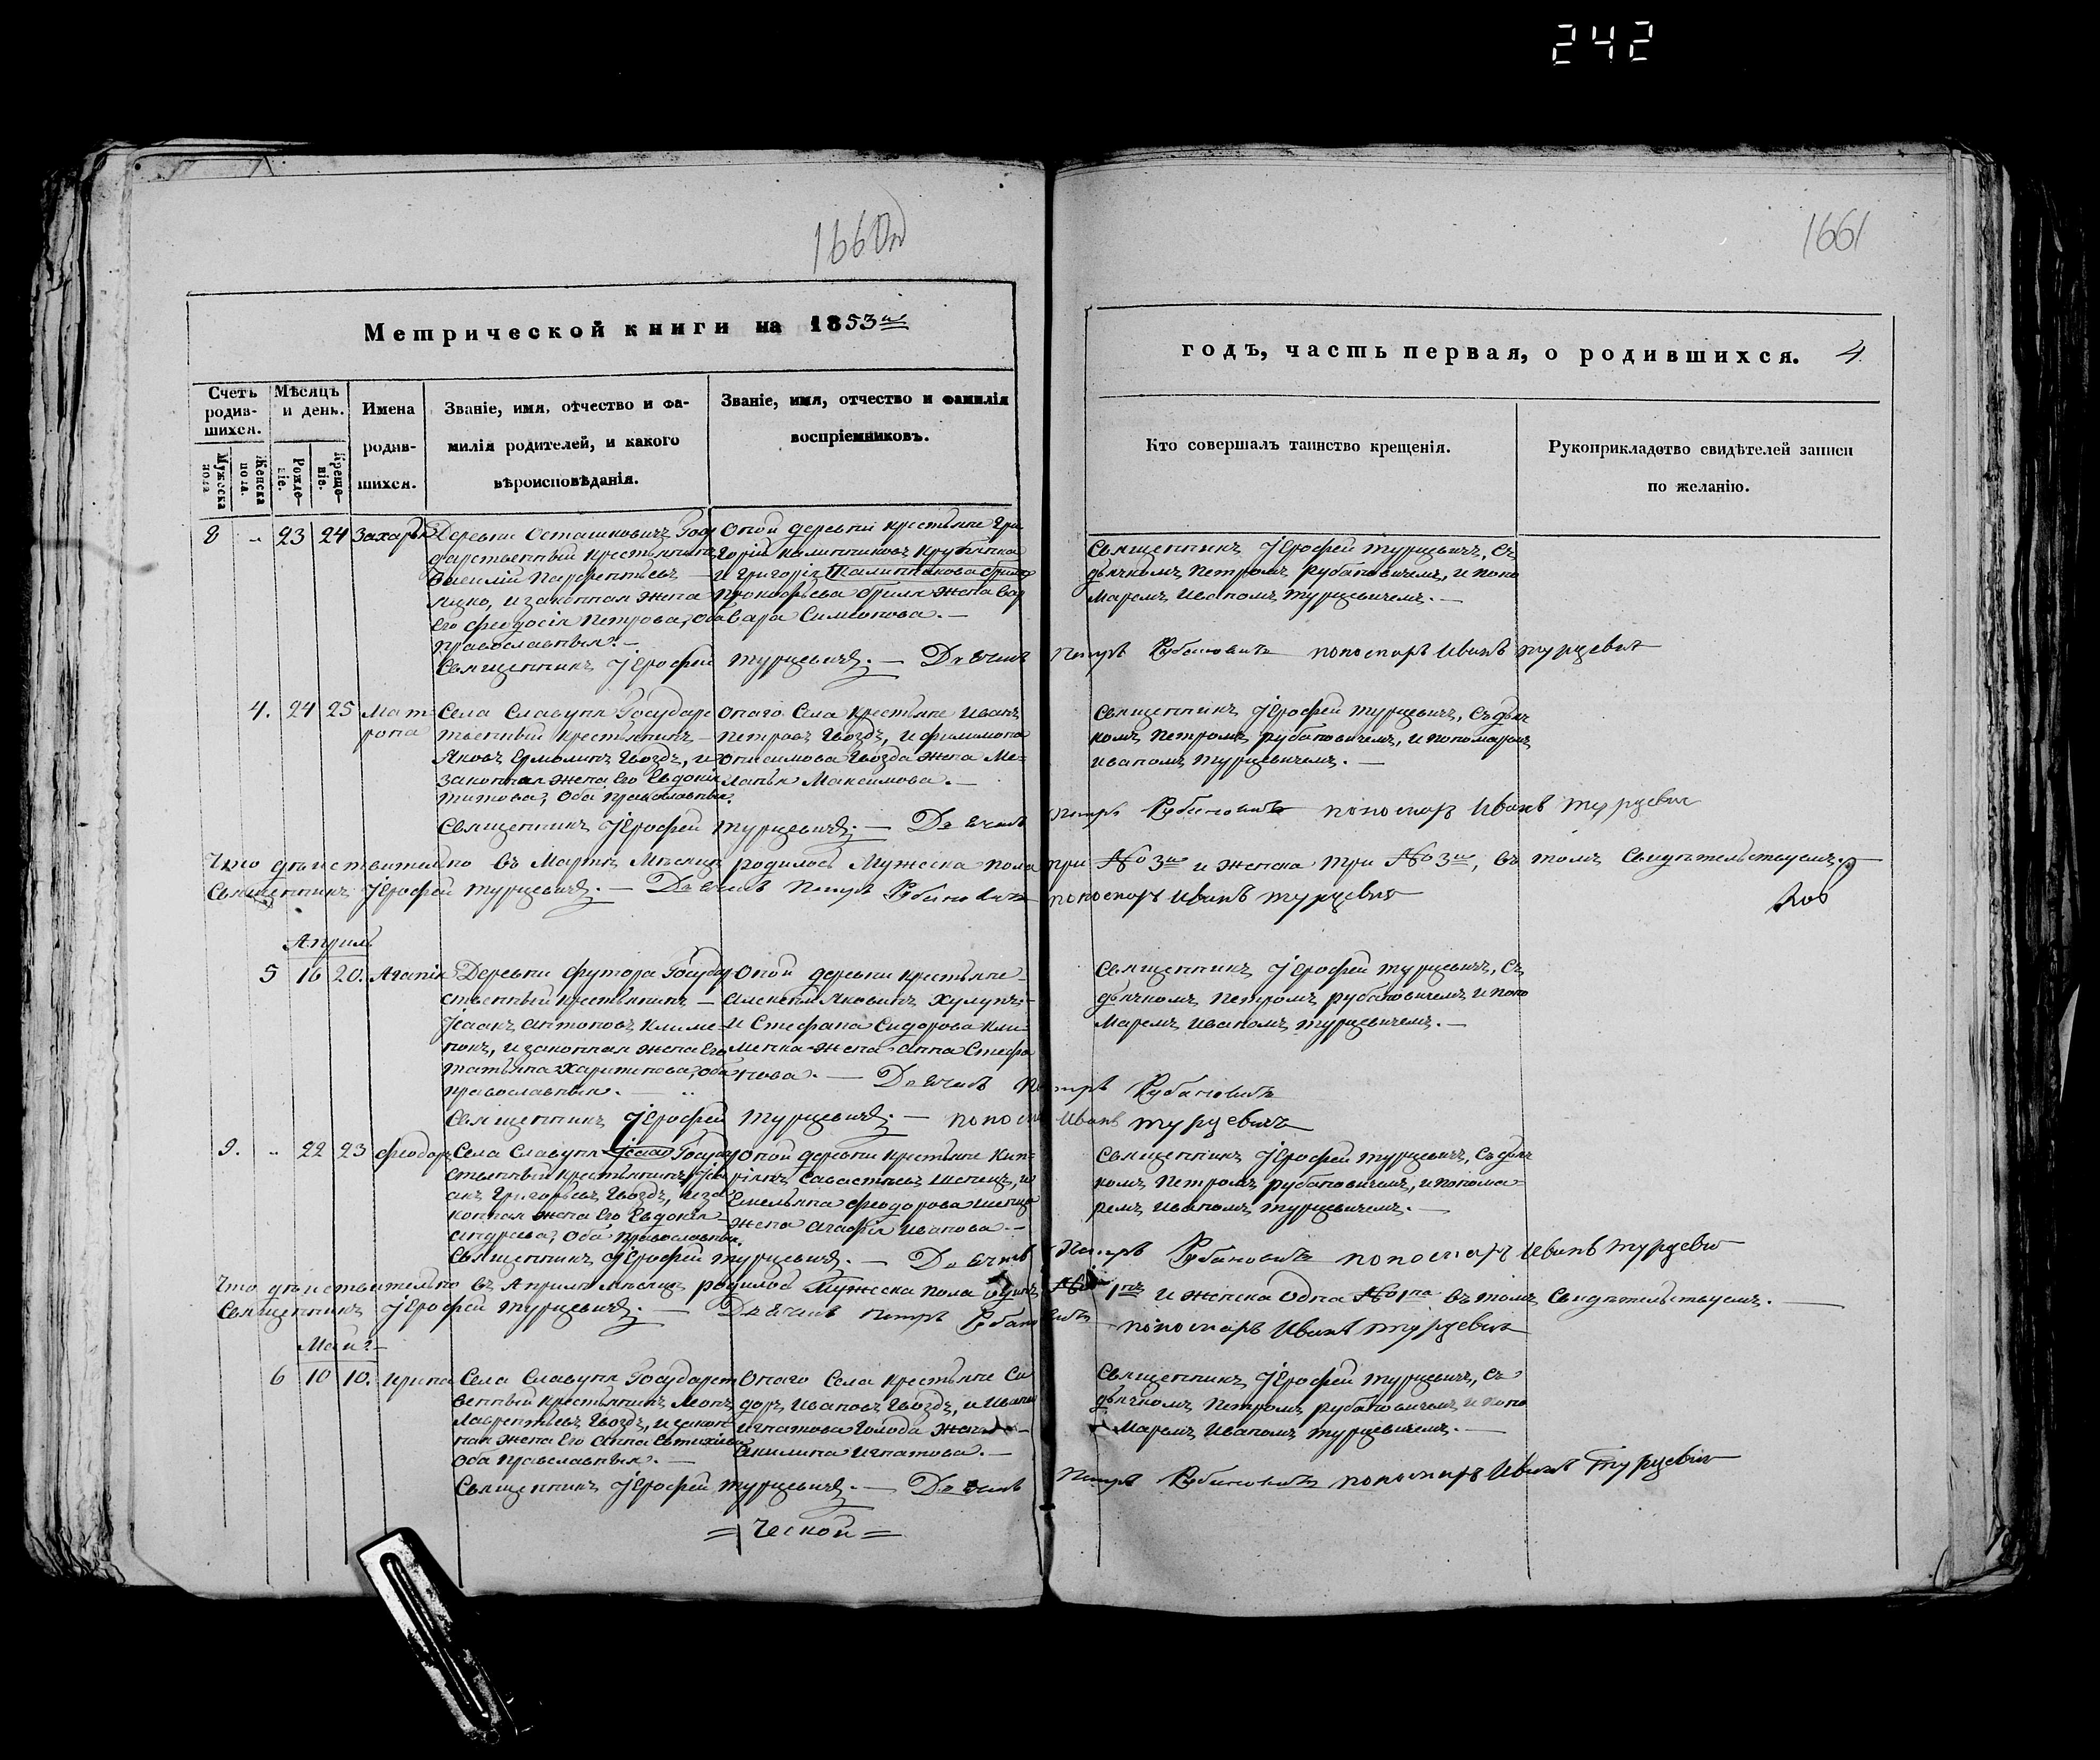 242
1660об
1661
Метрической книги на 1853й
годъ, часть первая, о родившихся. 4.
Счетъ родив-шихся.
Мужеска пола
Женска пола.
Мѣсяцъ и день.
Рожде-ніе.
Креще-ніе.
Имена
родив-
шихся.
Званіе, имя, отчество и фа-
милія родителей, и какого
вѣроисповѣданія.
Званіе, имя, отчество и фамилія
воспріемниковъ.
Кто совершалъ таинство крещенія.
Рукоприкладство свидѣтелей записи
по желанію.
8 „ 23 24 Захарія
Деревни Осташковичъ Госу
дарственный крестьянинъ
Василій Парфентьевъ
лицко, и законная жена
его Феодосія Петрова, оба
православные. —
Оной деревни крестьяне Гри
горій Калинниковъ
и Григорія
Прокофьева жена Вар
вара Симионова. —
Священникъ Іерофей Турцевичъ, съ
дьячкомъ Петромъ Рубановичемъ, и поно
маремъ Иваномъ Турцевичемъ. —
Священникъ Іерофей Турцевичъ. — Дьячекъ Петръ Рубановичъ пономаръ Иванъ Турцевичъ
4. 24 25 Мат
рона
Села Славуня Государс
твенный крестьянинъ —
Яковъ Ермолинъ Гвоздъ, и
законная жена его Евдокія
Титова, оба православные.
Онаго Села крестьяне Иванъ
Петровъ Гвоздъ, и Филимона
Онисимова Гвозда жена Ме-
ланья Максимова. —
Священникъ Іерофей Турцевичъ, съ дьяч
комъ Петромъ Рубановичемъ, и пономаремъ
Иваномъ Турцевичемъ. —
Священникъ Іерофей Турцевичъ. — Дьячекъ Петръ Рубановичъ пономаръ Иванъ Турцевич
Что дѣйствительно въ Мартѣ Мѣсяцѣ родилось Мужеска пола три №3и и женска три №3и, въ томъ Свидѣтельствуемъ.
Священникъ Іерофей Турцевичъ. — Дьячекъ Петръ Рубановичъ пономаръ Иванъ Турцевичъ
Апрель
5 16 20. Агапія
Деревни Футора Государ
ственный крестьянинъ —
Ісаакъ Антоновъ Климе-
нокъ, и законная жена его
Татьяна Харитонова, оба
православные. —
Оной деревни крестьяне
Алексѣй Яковинъ
и Стефана Сидорова Кли-
менка жена Анна Стефа
нова. —
Священникъ Іерофей Турцевичъ, съ
дьячкомъ Петромъ Рубановичемъ, и поно
маремъ Иваномъ Турцевичемъ. —
Дьячекъ Петръ Рубановичъ
Священникъ Іерофей Турцевичъ. — пономаръ Иванъ Турцевичъ
9. „ 22 23 Феодоръ
Села Славуня Государ
ственный крестьянинъ Іса
акъ Григорьевъ Гвоздъ, и за
конная жена его Евдокія
Андреева, оба православные.
Оной деревни крестьяне Кип-
ріянъ Савастіевъ
Емельяна Феодорова
жена Агафія Иванова. —
Священникъ Іерофей Турцевичъ, съ дьяч
комъ Петромъ Рубановичемъ, и понома-
ремъ Иваномъ Турцевичемъ. —
Священникъ Іерофей Турцевичъ. — Дьячекъ Петръ Рубановичъ пономаръ Иванъ Турцевичъ
Что дѣйствительно въ Апрелѣ мѣсяцѣ родилось Мужеска пола одинъ № 1нъ и женска одна №1на въ томъ Свидѣтельствуемъ. —
Священникъ Іерофей Турцевичъ. — Дьячекъ Петръ Рубановичъ пономаръ Иванъ Турцевичъ
Маий
6 10 10. Ирина
Села Славуня Государст
венный крестьянинъ Леонъ
Лаврентьевъ Гвоздъ, и закон
ная жена его Анна Евтихіева
оба православные. —
Онаго Села крестьяне Си
доръ Ивановъ Гвоздъ, и Ивана
Игнатова Голода жена
Акилина Игнатова. —
Священникъ Іерофей Турцевичъ, съ
дьячкомъ Петромъ Рубановичемъ и поно
маремъ Иваномъ Турцевичемъ. —
Священникъ Іерофей Турцевичъ. — Дьячекъ Петръ Рубановичъ пономаръ Иванъ Турцевичъ
= ческой =